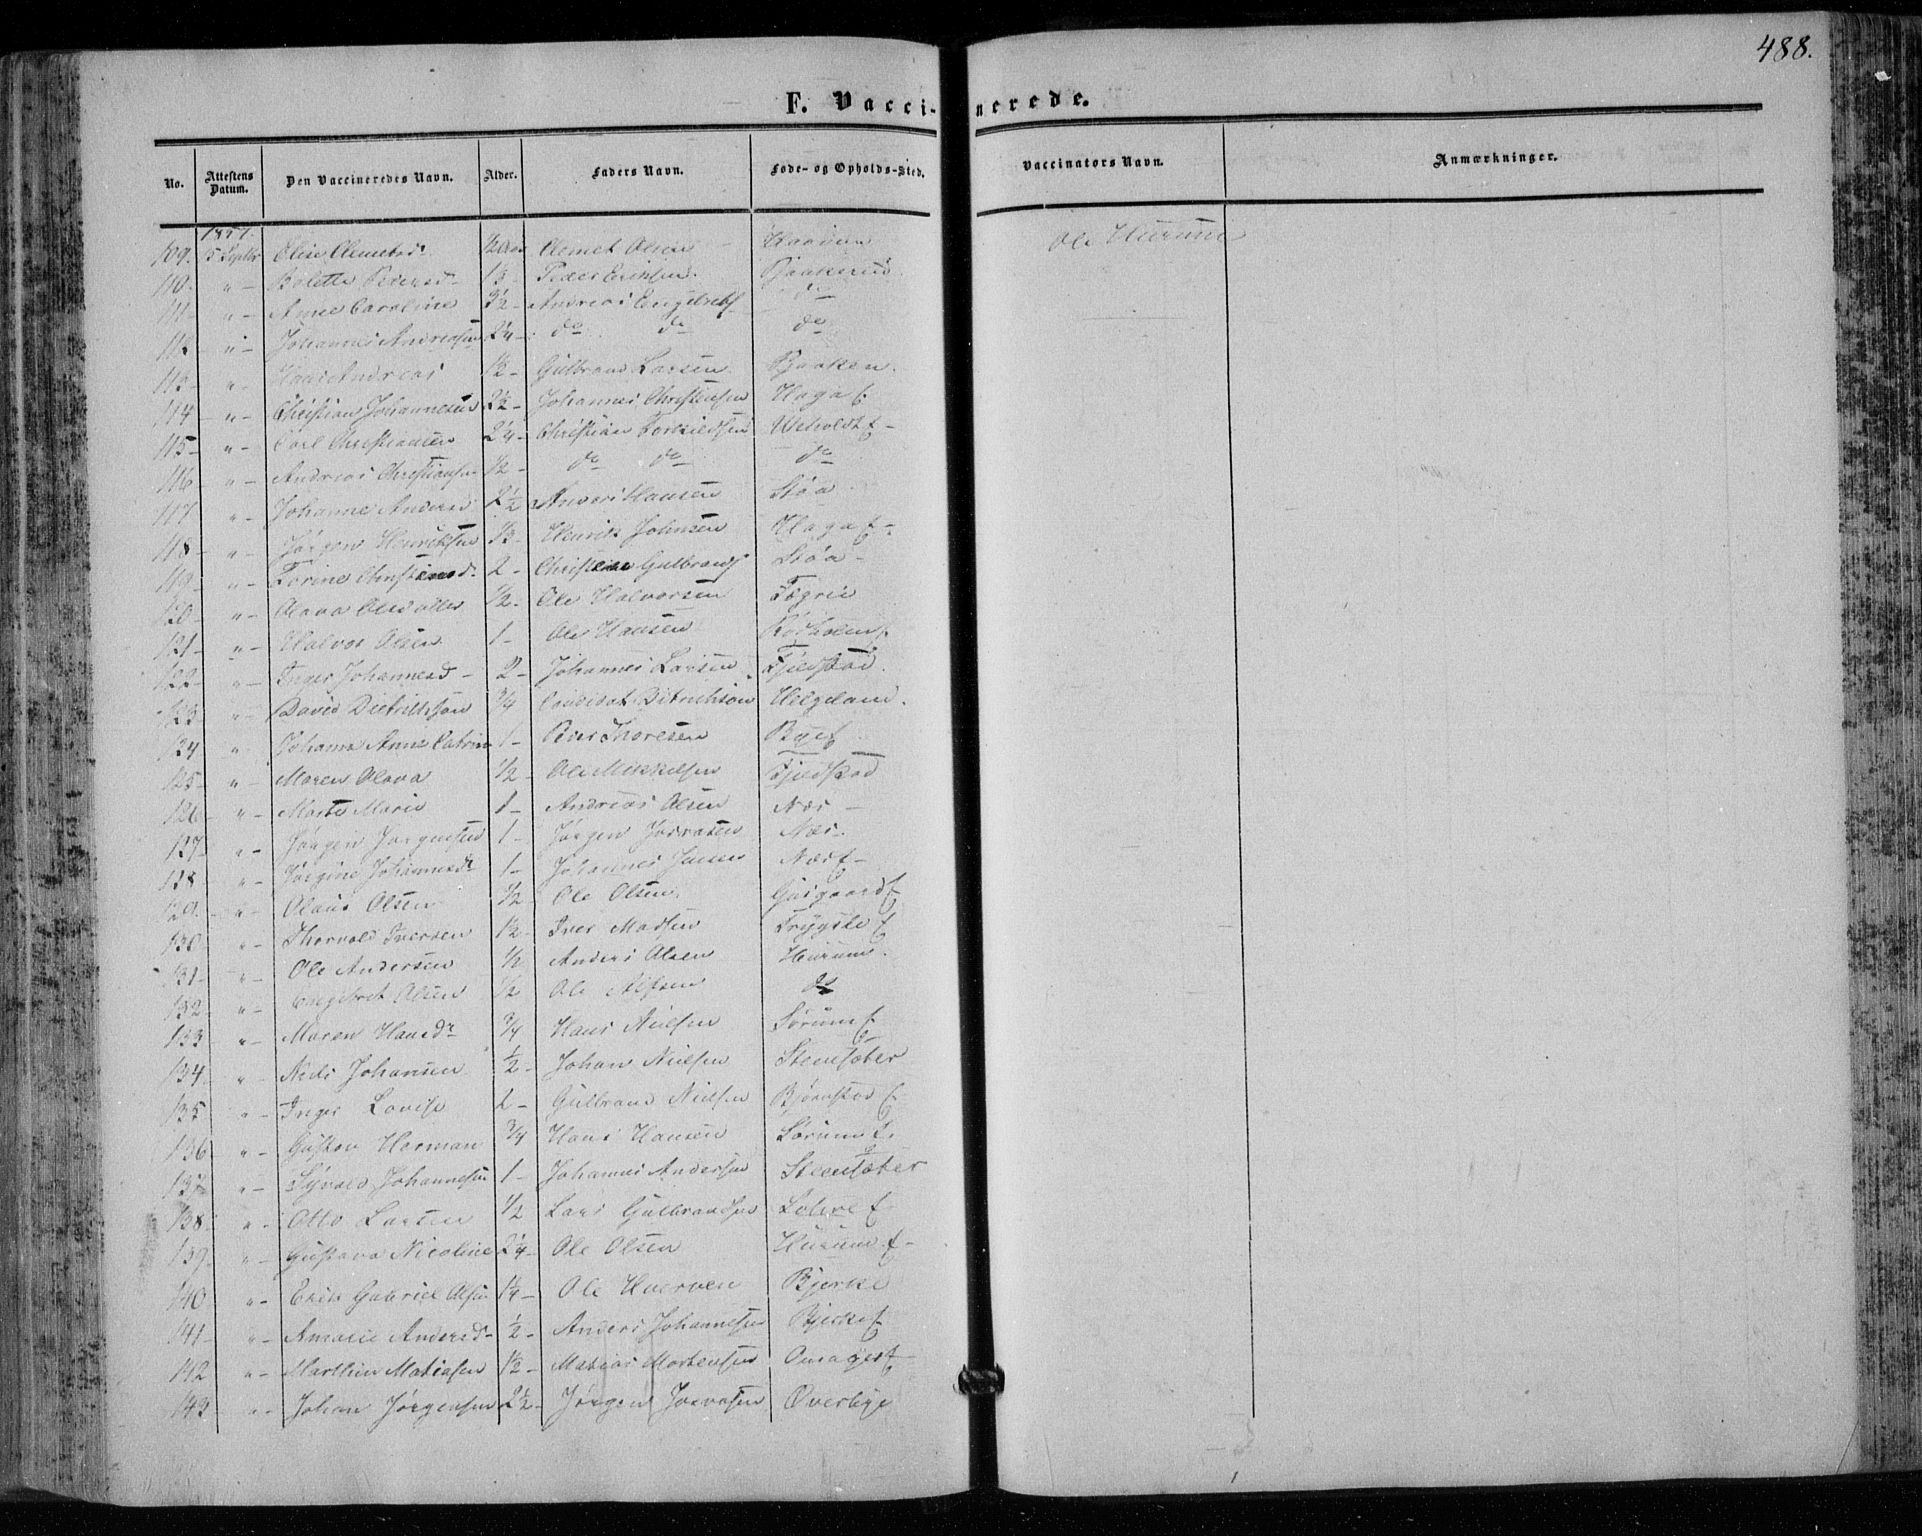 488.
F. Vaccinerede.
No. Attestens Datum. Den Vaccineredes Navn. Alder. Faders Navn. Føde- og Opholds-Sted. Vaccinators Navn. Anmærkninger.
1851.
109. 5 Septbr Oline Clemetsd. ½ Aar Clemet Olsen Ole Hurum
110. " - Bolette Pedersd - 1½ - Peder Eriksen.
111 - " - Anne Caroline 3½ - Andreas Engebrets do
112 " - Johannes Andreasen 2¼ - do do do
113 - " - Hans Andreas 1½ - Gulbrand Larsen Baaken.
114 - " - Christian Johannesen 2½ - Johannes Christensen Haga E.
115 - " - Carl Christiansen 2¼ - Christian E -
116 - " - Andreas Christiansen ½ - do do - do
117 " - Johanne Andersd 2½ Anders Hansen Støa
118 - " - Jørgen Henriksen 1½ - Henrik Johnsen Haga E -
119 - " - Torine Christensd. 2 - Christen Gulbrands Støa -
120 - " - Olava Olsdatter ½ - Ole Halvorsen
121 - " - Halvor Olsen 1 - Ole Hansen
122 - " - Inger Johannesd - 2 - Johannes Larsen Fjeldstad.
123 " - David Dietrichson ¾ Candidat Ditrichson Helgeland.
124 " - Johanne Anne Catrine 1 - Peder Thoresen Bye E
125 - " - Maren Olava ½ - Ole Mikkelsen Fjeldstad
126 - " - Marte Marie 1 - Andreas Olsen Næs -
127 - " - Jørgen Jørgensen 1 - Jørgen Næs.
128 " - Jørgine Johannesdr 1 - Johannes Jensen Næs E -
129. - " - Olaus Olsen ½ - Ole Olsen. E
130 - " - Thorvald Iversen 1½ - Iver Madsen Trygste E
131 - " - Ole Andersen ½ Anders Olsen Hurum.
132 - " - Engebret Olsen ½ Ole do
133 - " - Maren Hansdr ¾ Hans Nielsen Sørum E
134 - " - Niels Johansen ½ - Johan Nielsen Steensæter
135 " - Inger Lovise 2 - Gulbrand Nielsen Bjørnstad E
136 " - Gustav Herman ¾ Hans Hansen Sørum E.
137 " - Syvald Johannesen 1 - Johannes Andersen Steensæter
138 - " - Otto Larsen ½ Lars Gulbrandsen E
139 " - Gustava Nicoline 2¼ - Ole Olsen Hurum E -
140 " - Erik Gabriel Olsen 1¼ - Ole Hverven Bjerke
141 - " - Amalie Andersd - ½ - Anders Johannesen Bjerke E
142 " - Marthin Matiasen 1½ - Matias Mortensen E
143 " - Johan Jørgensen 2½ - Jørgen Overbye